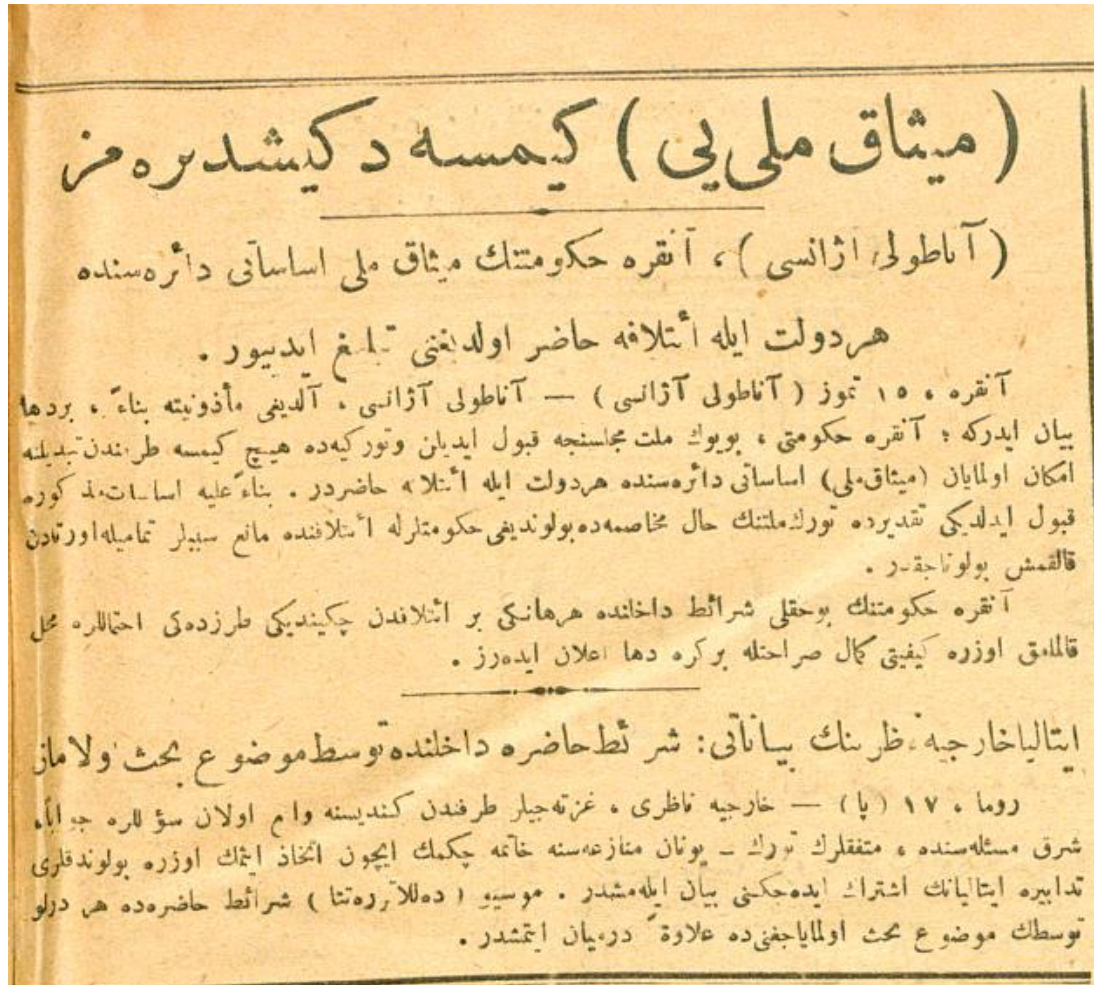 (ميثاق ملی یی) كيمسه دكيشديره مز
(آناطولی اژانسی)، آنقره حكومتنك ميثاق ملی اساساتی دائره سنده
هردولت ايله ائتلافه حاضر اولديغنی تبليغ ايدييور .
آنقره ، ١٥ تموز (آناطولی آژانسی) — آناطولی آژانسی ، آلديغی مأذونيته بناءً ، بردها
بيان ايدركه ؛ آنقره حكومتی ، بويوك ملت مجلسنجه قبول ايديلن وتوركيه ده هيچ كيمسه طرفندن تبديلنه
امكان اولمايان (ميثاق ملی) اساساتی دائره سنده هردولت ايله ائتلافه حاضردر . بناءً عليه اساسات مذكوره
قبول ايدلديكی تقديرده تورك ملتنك حال مخاصمه ده بولونديغی حكومتلرله ائتلافنده مانع سببلر تماميله اورتادن
قالقمش بولوناجقدر .
آنقره حكومتنك بوحقلی شرائط داخلنده هرهانكی بر ائتلافدن چكينديكی طرزده كی احتماللره محل
قالمامق اوزره كيفيتی كمال صراحتله بركره دها اعلان ايده رز .
ايتاليا خارجيه ناظرينك بياناتی: شرائط حاضره داخلنده توسط موضوع بحث اولاماز
روما ، ١٧ (پا) — خارجيه ناظری ، غزته جيلر طرفندن كنديسنه واقع اولان سؤاللره جواباً،
شرق مسئله سنده ، متفقلرك تورك ـ يونان منازعه سنه خاتمه چكمك ايچون اتخاذ ايتمك اوزره بولوندقلری
تدابيره ايتاليانك اشتراك ايده جكنی بيان ايله مشدر . موسيو (ده للاتوره تتا) شرائط حاضره ده هر درلو
توسطك موضوع بحث اولماياجغنی ده علاوةً درميان ايتمشدر .